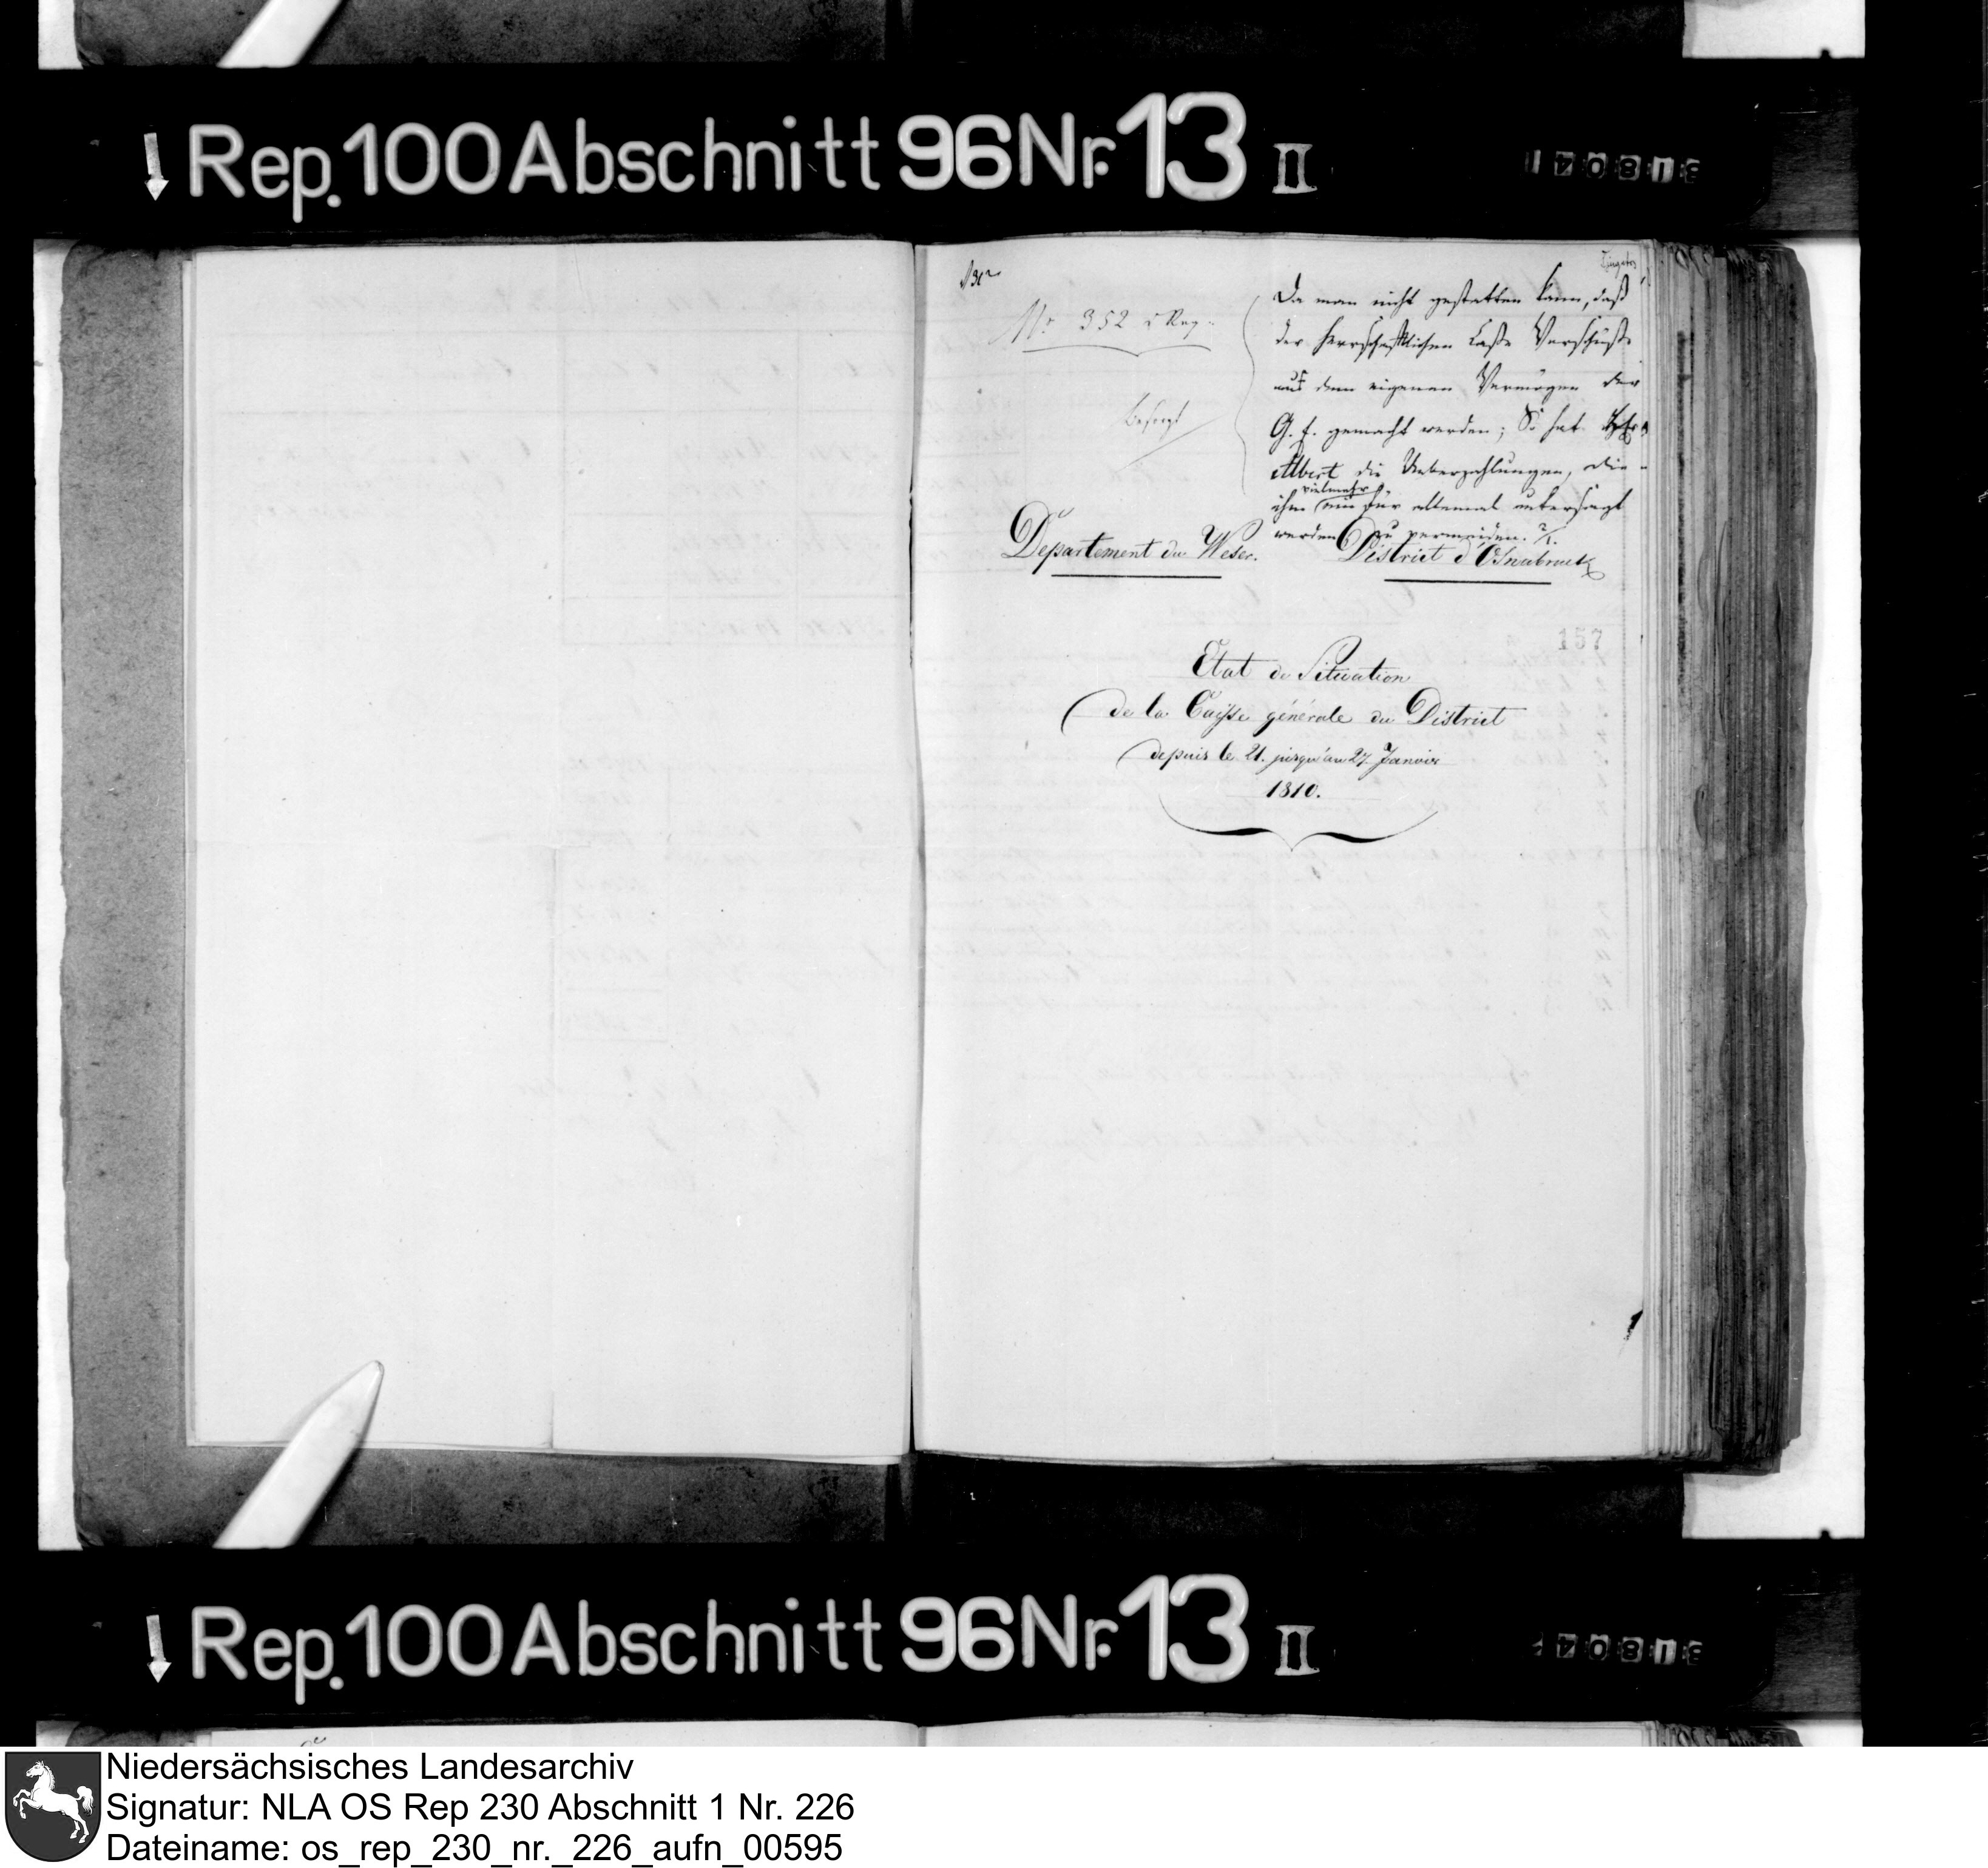 Rep. 100 Abschnitt 96 Nr. 13 II
318041
No 352
besorgt
Da man nicht gestatten kann, daß
der herrschaftlichen Casse Vorschüsse
aus dem eigenen Vermögen der
G. f. gemacht werden; So hat
Albert die Ueberzahlungen, die
vielmehr
ihm für allemal untersagt
werden zu vermeiden.
Departement du Weser. District d'Osnabruck
157
Etat de Situation
de la Caisse générale du District
depuis le 21. jusqu'au 27 Janvier
1810.
Rep. 100 Abschnitt 96 Nr. 13 II
318041
Niedersächsisches Landesarchiv
Signatur: NLA OS Rep 230 Abschnitt 1 Nr. 226
Dateiname: os_rep_230_nr._226_aufn_00595